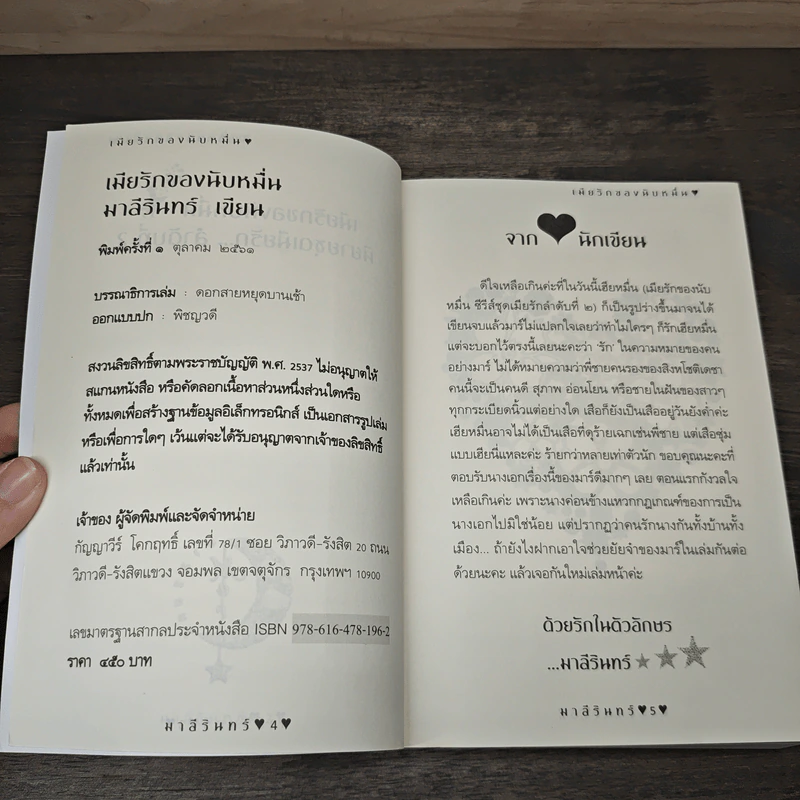 เมียรักของนับหมื่น♥
เมียรักของนับหมื่น
มาลีรินทร์ เขียน
พิมพ์ครั้งที่ ๑ ตุลาคม ๒๕๖๑
บรรณาธิการเล่ม : ดอกสายหยุดบานเช้า
ออกแบบปก : พิชญวดี
สงวนลิขสิทธิ์ตามพระราชบัญญัติ พ.ศ. 2537 ไม่อนุญาตให้
สแกนหนังสือ หรือคัดลอกเนื้อหาส่วนหนึ่งส่วนใดหรือ
ทั้งหมดเพื่อสร้างฐานข้อมูลอิเล็กทรอนิกส์ เป็นเอกสารรูปเล่ม
หรือเพื่อการใดๆ เว้นแต่จะได้รับอนุญาตจากเจ้าของลิขสิทธิ์
แล้วเท่านั้น
เจ้าของ ผู้จัดพิมพ์และจัดจำหน่าย
กัญญาวีร์ โคกฤทธิ์ เลขที่ 78/1 ซอย วิภาวดี-รังสิต 20 ถนน
วิภาวดี-รังสิตแขวง จอมพล เขตจตุจักร กรุงเทพฯ 10900
เลขมาตรฐานสากลประจำหนังสือ ISBN 978-616-478-196-2
ราคา ๔๕๐ บาท
มาลีรินทร์♥4♥
เมียรักของนับหมื่น♥
จาก ♥ นักเขียน
ดีใจเหลือเกินค่ะที่ในวันนี้เฮียหมื่น (เมียรักของนับ
หมื่น ซีรีส์ชุดเมียรักลำดับที่ ๒) ก็เป็นรูปร่างขึ้นมาจนได้
เขียนจบแล้วมาร์ไม่แปลกใจเลยว่าทำไมใครๆ ก็รักเฮียหมื่น
แต่จะบอกไว้ตรงนี้เลยนะคะว่า 'รัก' ในความหมายของคน
อย่างมาร์ ไม่ได้หมายความว่าพี่ชายคนรองของสิงหโชติเดชา
คนนี้จะเป็นคนดี สุภาพ อ่อนโยน หรือชายในฝันของสาวๆ
ทุกกระเบียดนิ้วแต่อย่างใด เสือก็ยังเป็นเสืออยู่วันยังค่ำค่ะ
เฮียหมื่นอาจไม่ได้เป็นเสือที่ดุร้ายเฉกเช่นพี่ชาย แต่เสือซุ่ม
แบบเฮียนี่แหละค่ะ ร้ายกว่าหลายเท่าตัวนัก ขอบคุณนะคะที่
ตอบรับนางเอกเรื่องนี้ของมาร์ดีมากๆ เลย ตอนแรกกังวลใจ
เหลือเกินค่ะ เพราะนางค่อนข้างแหวกกฎเกณฑ์ของการเป็น
นางเอกไปมิใช่น้อย แต่ปรากฏว่าคนรักนางกันทั้งบ้านทั้ง
เมือง... ถ้ายังไงฝากเอาใจช่วยยัยจำของมาร์ในเล่มกันต่อ
ด้วยนะคะ แล้วเจอกันใหม่เล่มหน้าค่ะ
ด้วยรักในตัวอักษร
...มาลีรินทร์
มาลีรินทร์♥5♥